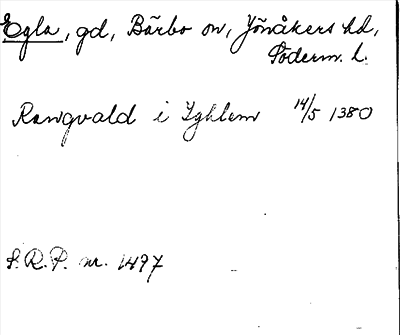 Egla, gd, Bärbo sn, Jönåkers hd,
Söderm. l.
Rangvald i Ighlem 14/5 1380
S.R.P. nr. 1497